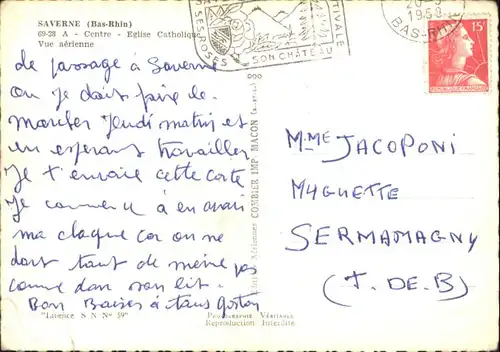 SAVERNE (Bas-Rhin)
69-28 A - Centre - Eglise Catholique
Vue aérienne
SES ROSES
SON CHÂTEAU
ESTIVALE
1958
BAS-RHIN
15F
REPUBLIQUE FRANÇAISE
de passage à Saverne
ou je dois faire le
marcher Jeudi matin et
en esperant travailler
Je t'envoie cette carte
Je commence à en avoir
ma claque car on ne
dort tout de même pas
comme dans son lit.
Bon Baises à tous Gaston
Mme JACOPONI
MUGUETTE
SERMAMAGNY
(T. DE. B)
Aériennes COMBIER IMP. MACON
"Licence S N N° 59"
Photographie Véritable
Reproduction Interdite